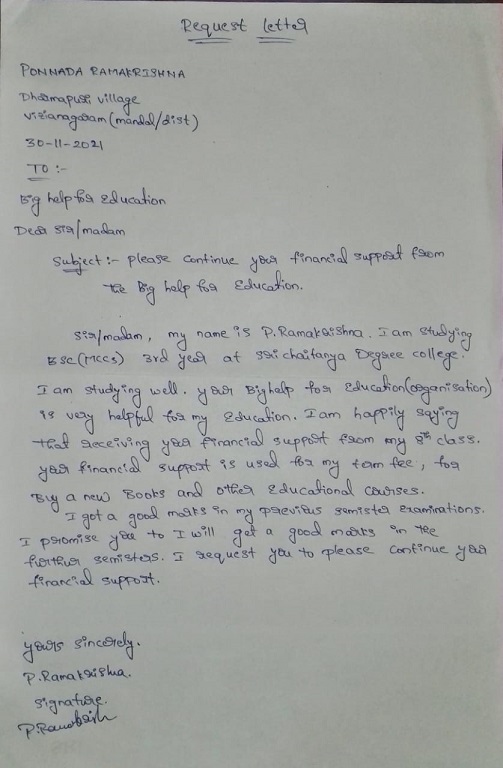 Request letter
PONNADA RAMAKRISHNA
Dharmapuri village
vizianagaram (mandal/dist)
30-11-2021
To :-
Big help for Education
Dear sir/madam
Subject :- please continue your financial support from
the Big help for Education.
Sir/madam, my name is P.Ramakrishna. I am studying
BSC(MCCS) 3rd year at sri chaitanya Degree college.
I am studying well. your Big help for Education(organisation)
is very helpful for my Education. I am happily saying
that receiving your financial support from my 8th class.
your financial support is used for my tam fee, for
Buy a new Books and other Educational courses.
I got a good marks in my previous semister examinations.
I promise you to I will get a good marks in the
further semisters. I request you to please continue your
financial support.
yours sincerely.
P.Ramakrishna.
signature.
P.Ramakrish